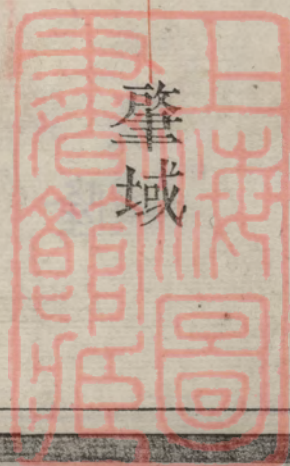 肇域
上海圖
書館藏